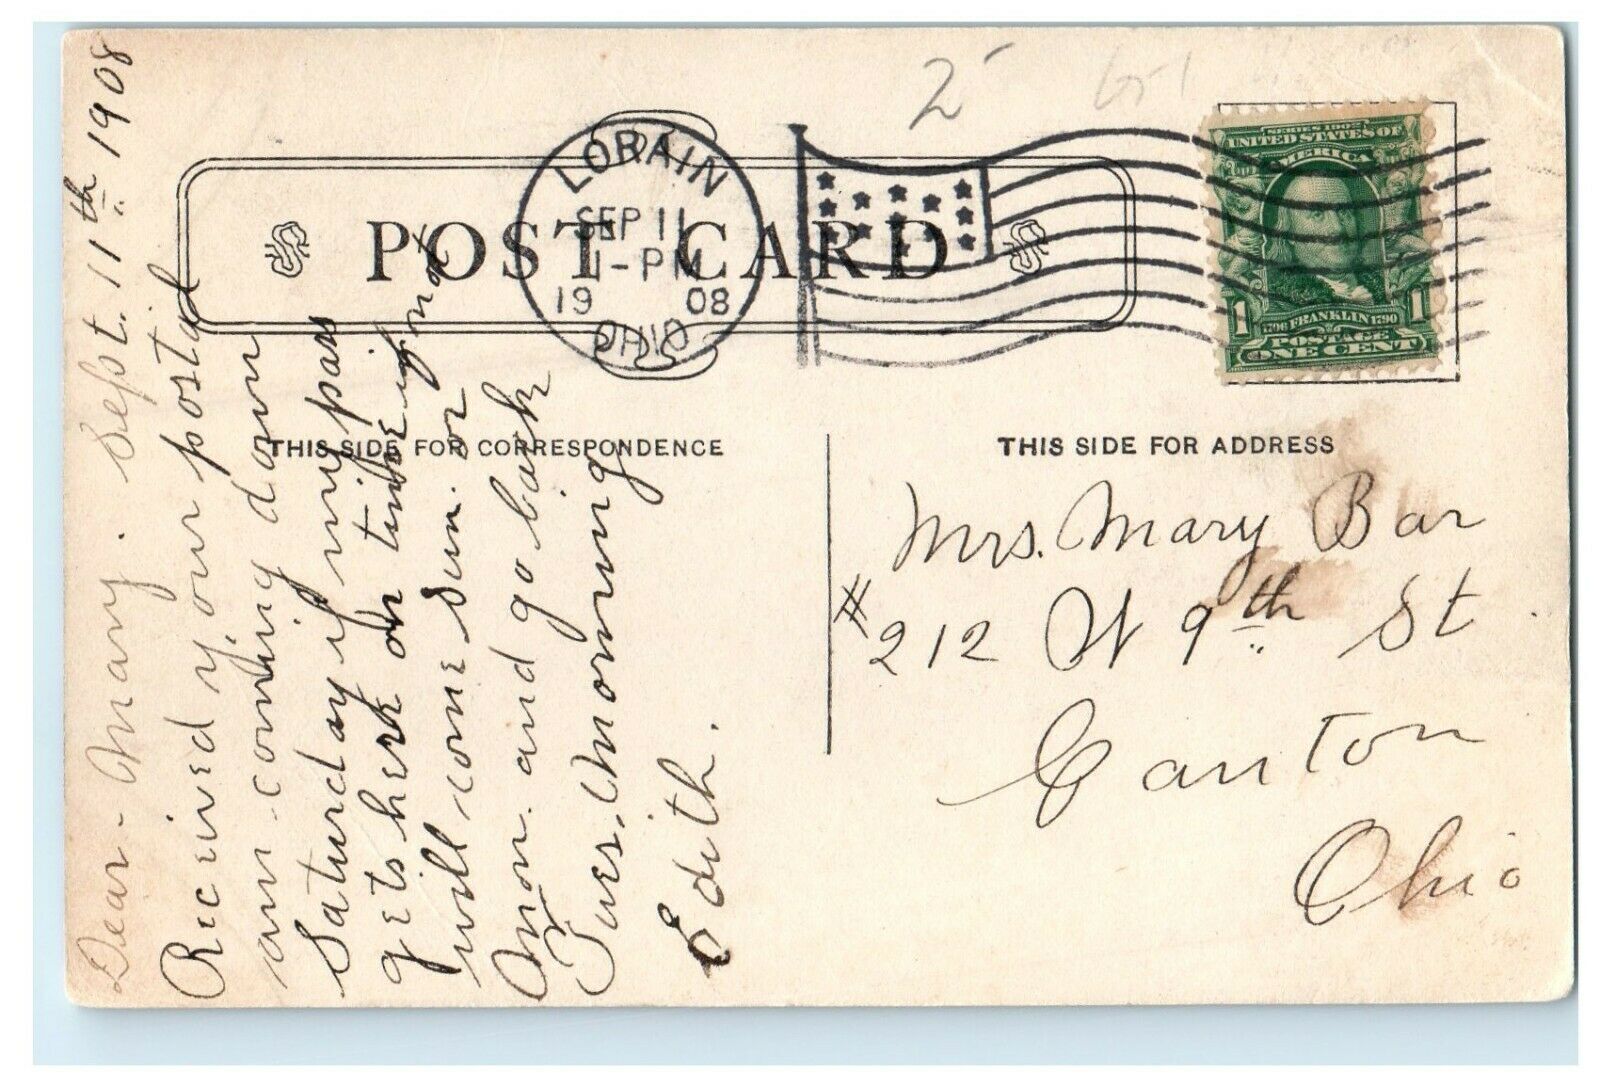 2-
LORAIN
SEP 11
1-PM
19 08
OHIO
SERIES 1902
UNITED STATES OF
AMERICA
1 1
1706 FRANKLIN 1790
POSTAGE
ONE CENT
POST CARD
THIS SIDE FOR CORRESPONDENCE
THIS SIDE FOR ADDRESS
Dear Mary. Sept. 11th 1908
Received your postal
am coming down
Saturday if my pass
gets here on time if not
will come Sun. or
Mon. and go back
Tues. Morning
Edith.
Mrs. Mary Bar
# 212 W 9th St.
Canton
Ohio